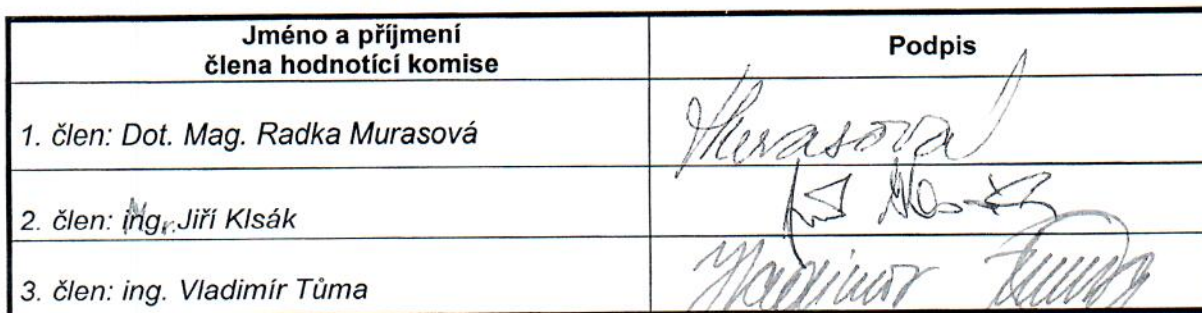 Jméno a příjmení
člena hodnotící komise
Podpis
1. člen: Dot. Mag. Radka Murasová
Murasová
2. člen: Mgr. Jiří Klsák
3. člen: ing. Vladimír Tůma
Vladimír Tůma